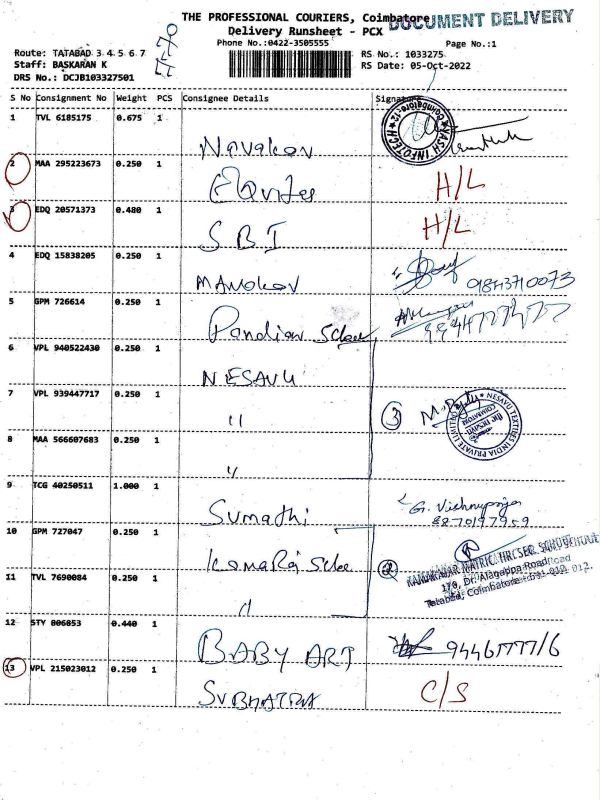 THE PROFESSIONAL COURIERS, Coimbatore
DOCUMENT DELIVERY
Delivery Runsheet - PCX
Phone No.:0422-3505555 Page No.:1
Route: TATABAD 3 4 5 6 7 RS No.: 1033275
Staff: BASKARAN K RS Date: 05-Oct-2022
DRS No.: DCJB103327501
S No Consignment No Weight PCS Consignee Details Signature
1 TVL 6185175 0.675 1
YASH INFOTECH Coimbatore-12
2 MAA 295223673 0.250 1 H/L
3 EDQ 20571373 0.480 1 SBI H/L
4 EDQ 15838205 0.250 1 9843710073
5 GPM 726614 0.250 1 Pandian
6 VPL 940522430 0.250 1 NESAVU
7 VPL 939447717 0.250 1 "
3 NESAVU TEXTILES INDIA PRIVATE LIMITED
8 MAA 566607683 0.250 1 "
9 TCG 40250511 1.000 1 Sumathi G. Vishnupriya
8870197959
10 GPM 727047 0.250 1 KamaRaj
2 MATRIC HR.SEC SCHOOL
176, Dr. Alagappa Road
Tatabad, Coimbatore - 641 012.
11 TVL 7690084 0.250 1 "
12 STY 806853 0.440 1 BABY ART
13 VPL 215023012 0.250 1 SUBHATRA C/S